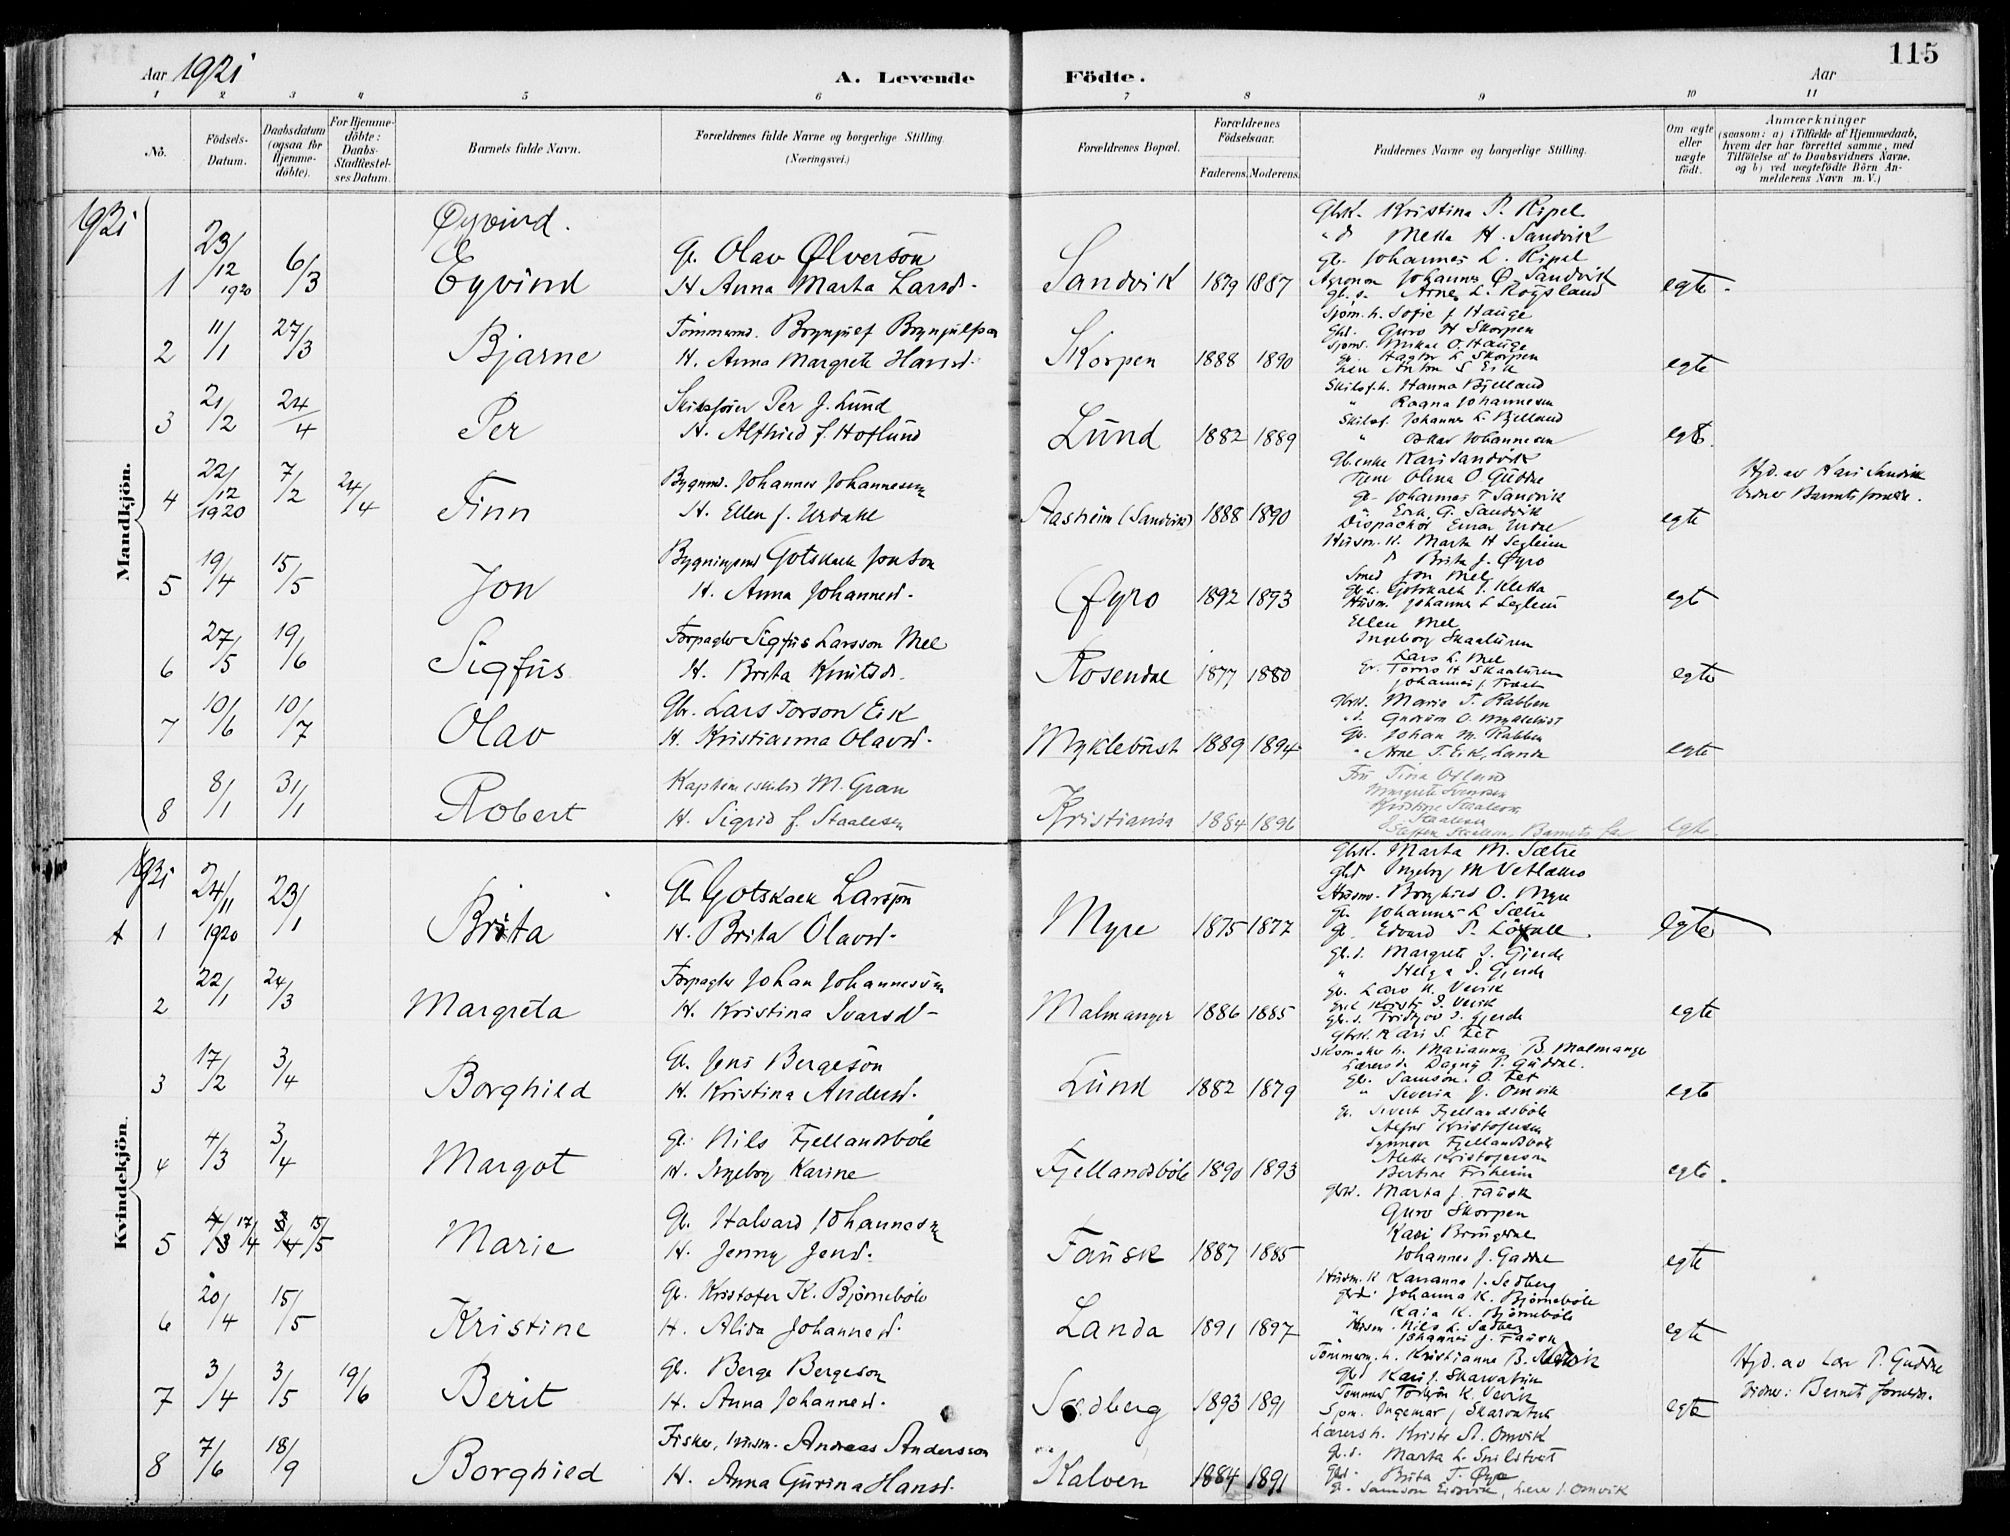 Aar 1921
A. Levende Födte.
Aar
115
1 2 3 4 5 6 7 8 9 10 11
No.
Födsels-Datum.
Daabsdatum (ogsaa för Hjemme-döbte).
For Hjemme-döbte: Daabs-Stadfæstel-ses Datum.
Barnets fulde Navn.
Forældrenes fulde Navne og borgerlige Stilling. (Næringsvei.)
Forældrenes Bopæl.
Forældrenes Födselsaar.
Faderens. Moderens.
Faddernes Navne og borgerlige Stilling.
Om ægte eller uægte födt.
Anmærkninger
(saasom: a) i Tilfælde af Hjemmedaab,
hvem der har forrettet samme, med
Tilföielse af to Daabsvidners Navne,
og b) ved uægtefödte Börn An-
melderens Navn m. V.)
Mandkjön.
1921
1 23/12 1920 6/3 Øyvind. Eyvind
G. Olav Ølverson
H. Anna Marta Larsd.
Sandvik 1879 1887
Gbrk. Kristina P. Ripel
Metta H. Sandvik
Gb. Johannes L. Ripel
Agronom Johannes Ø. Sandvik
Gb.s. Arne L. Røysland
egte
2 11/1 27/3 Bjarne
Tømmermd. Brynjulf Brynjulfson
H. Anna Margrete Hansd.
Skorpen 1888 1890
Sjøm. h. Sofie J Hauge
Gbd. Guro H Skorpen
Sjøm. Mikal O. Hauge
G. Hagtor L Skorpen
Anton S Eik
egte
3 21/2 24/4 Per
Skibsfører Per J. Lund
H. Alfhild f. Hoflund
Lund 1882 1889
Skibsf.h. Hanna Bjelland
" Ragna Johannesen
Skibsf. Johannes L. Bjelland
" Oskar Johannesen
egte.
4 22/12 1920 7/2 24/4 Finn
Bygnmd. Johannes Johannesen
H. Ellen f. Urdahl
Aasheim (Sandvik) 1888 1890
Gb.enke Kari Sandvik
Olina O. Guddal
G. Johannes T Sandvik
Erik G. Sandvik
Dispachør Einar Urdal
egte
Hjd. av Kari Sandvik
Vidner Barnets foreldre.
5 19/4 15/5 Jon
Bygningsmd Gotskalk Jonson
H. Anna Johannesd.
Øyro 1892 1893
Husm. K. Marta H Segleim
d Brita J. Øyro
Smed Jon Mel
Gb.s. Gotskalk J. Kletta
Husm. Johannes L Segleim
egte
6 27/5 19/6 Sigfus
Forpagter Sigfus Larsson Mel
H. Brita Knutsd.
Rosendal 1877 1880
Ellen Mel
Ingeborg Skaaluren
Lars L. Mel
G. Tørres H Skaaluren
Johannes J. Træet
egte
7 10/6 10/7 Olav
Gbr. Lars Torson Eik
H. Kristianna Olavsd.
Myklebust 1889 1894
Gbrk. Marie T. Rabben
d. Gudrun O. Myklebust
Gb. Johan M. Rabben
" Arne T. Eik, Lunde
egte
8 8/1 31/1 Robert
Kaptein (skibs) M. Gran
H. Sigrid f. Staalesen
Kristiania 1884 1896
Fru Tina Oflund
Margrete Svendsen
Kristine Staalesen
Staalesen
Steffen Staalesen, Barnets far
egte
Kvindekjön.
1921
1 24/11 1920 23/1 Brita
G. Gotskalk Larsson
H. Brita Olavsd.
Myre 1875 1877
Gbrk. Marta M. Sætre
Gbd Ingeborg M Vetlemo
Husmd. Borghild O. Myre
Gb. Johannes L Sætre
G. Edvard P. Løfall
egte
2 22/1 24/3 Margreta
Forpagter Johan Johannesson
H. Kristina Ivarsd.
Malmanger 1886 1885
Gb.d. Margrete I. Gjerde
" Helga I. Gjerde
Gb. Lars K. Vevik
Kristi I. Vevik
Gb.s. Fridtjov I. Gjerde
egte
3 17/2 3/4 Borghild
G. Jens Bergeson
H. Kristina Andersd.
Lund 1882 1879
Gbrk. Kari S. Tet
Skomaker h. Marianna B. Malmanger
Lærers d. Dagny P. Guddal.
Gb. Samson O. Tet
" Severin J. Omvik
egte
4 4/3 3/4 Margot
G. Nils Fjellandsbøle
H. Ingeborg Karine
Fjellandsbøle 1890 1893
G. Severt Fjellandsbøle
Alfred Kristofersen
Synneve Fjellandsbøle
Alette Kristofersen
Bertine Friheim
egte.
5 4/3 17/4 3/4 15/5 Marie
G. Halvard Johannesen
H. Jenny Jensd.
Fausk 1887 1885
Gbrd. Marta J. Fausk
Guro Skorpen
Kari Bringedal
Johannes J. Gaddal
egte
6 20/4 15/5 Kristine
G. Kristofer K. Bjørnebøle
H. Alida Johannesd.
Landa 1891 1897
Husm. K Karianna J. Sedberg
Gbrd. Johanna K. Bjørnebøle
Kaia K. Bjørnebøle
Husm. Nils L. Sedberg
Johannes J. Fausk
egte
7 3/4 3/5 19/6 Berit
G. Berge Bergeson
H. Anna Johannesd.
Sedberg 1893 1891
Tømmerm. h. Kristianna B. Vevik
Gbd. Kari J. Skarvatun
Tømmerm Torbjørn K. Vevik
Sjøm. Ingemar J Skarvatun
egte
Hjd. av Lar P. Guddal
Vidner: Barnets foreldre.
8 7/6 18/9 Borghild
Fisker, husm. Andreas Andersson
H. Anna Gurina Hansd.
Kalven 1884 1891
Lærers h. Kristi St. Omvik
G.d. Marta L. Snilstveit
Gbd. Brita T. Øyre
G. Samson Eidsvik, Lærer J. Omvik